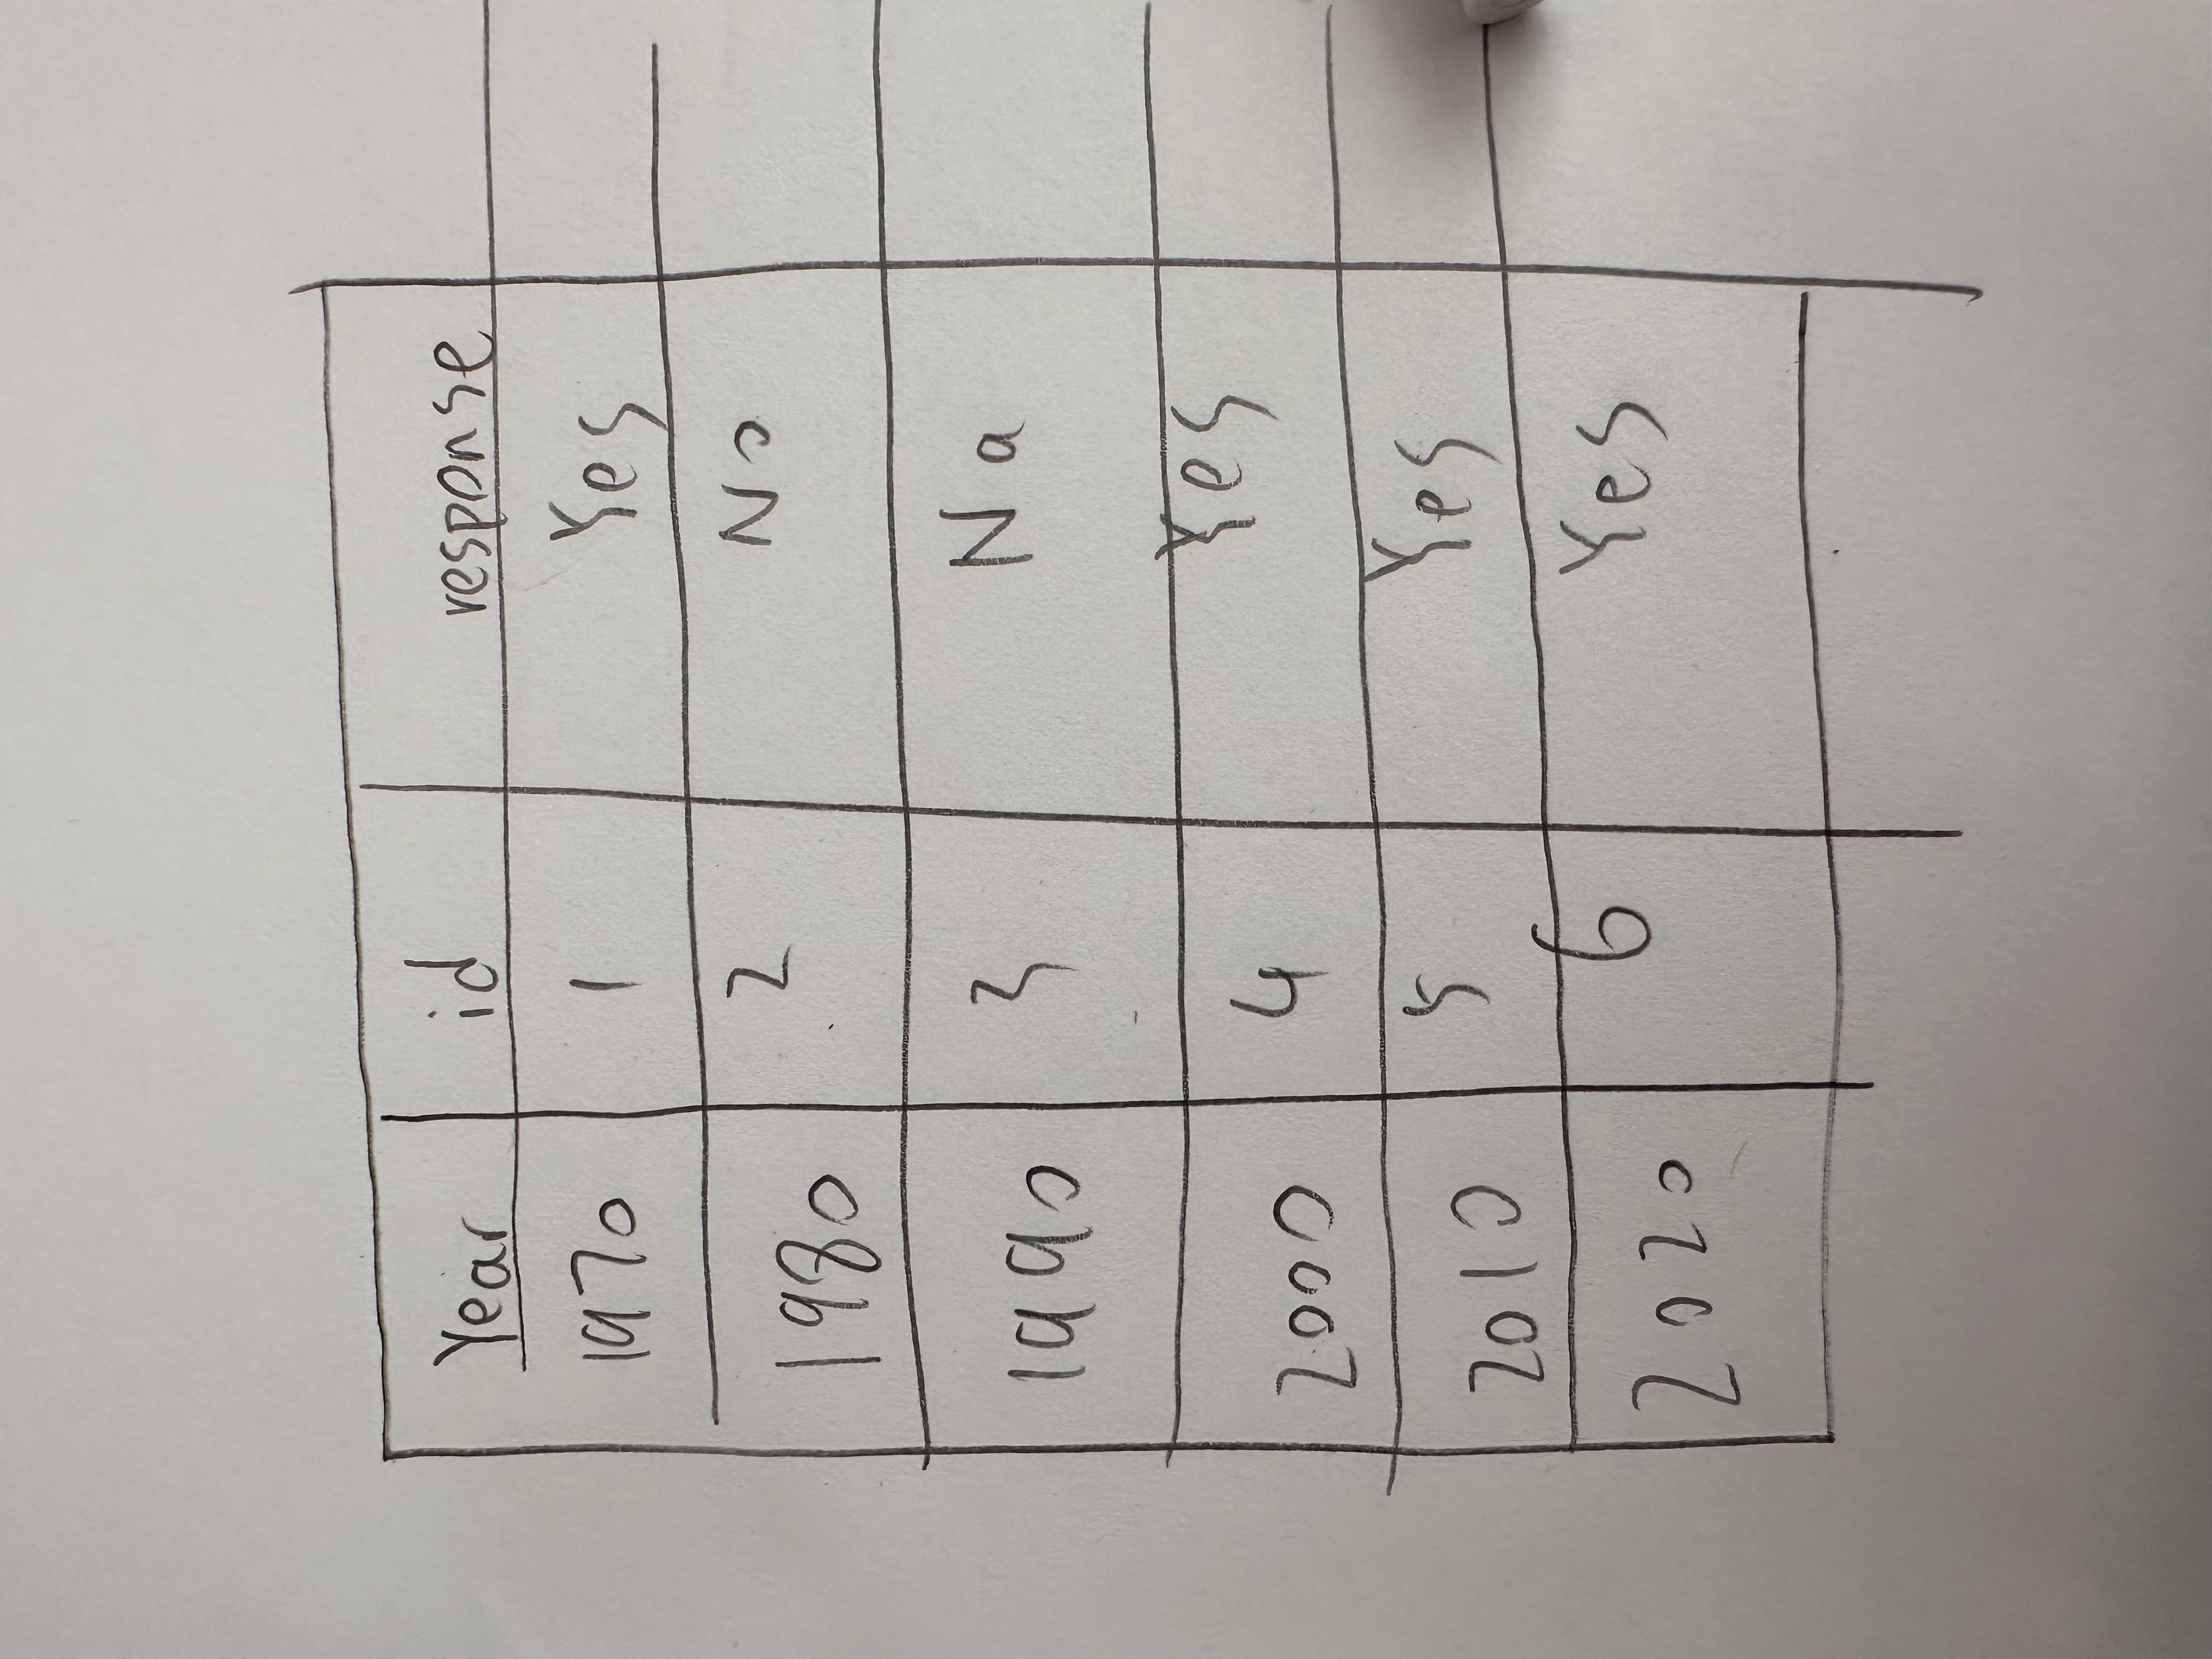 Year id response
1970 1 Yes
1980 2 No
1990 3 Na
2000 4 Yes
2010 5 Yes
2020 6 Yes